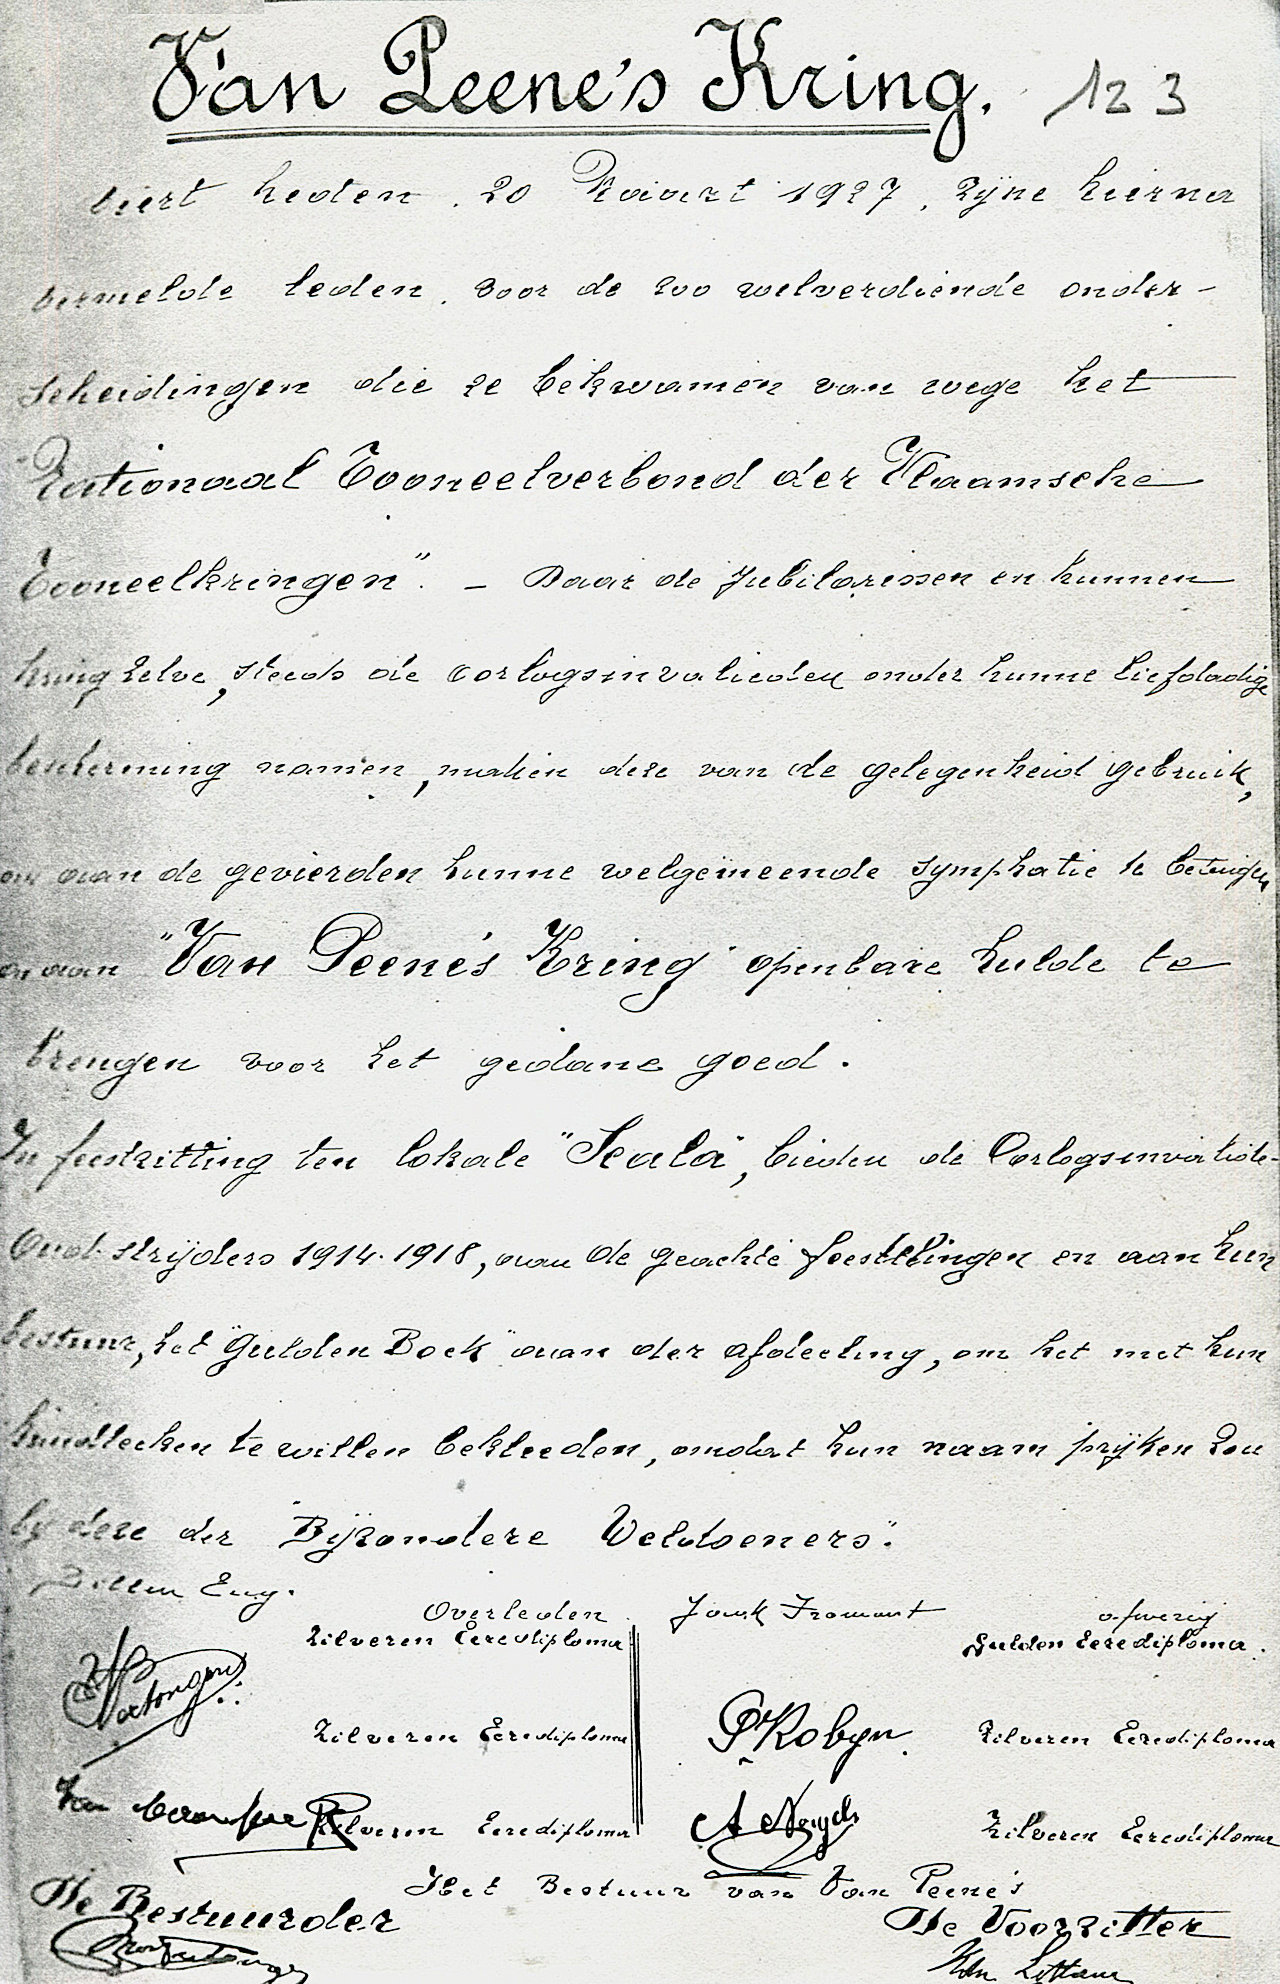 Van Peene's Kring. 123
viert heden, 20 Maart 1927, zijne hierna
vermelde leden, voor de zoo welverdiende onder-
scheidingen die ze bekwamen van wege het
"Nationaal Tooneelverbond der Vlaamsche
Tooneelkringen". - Daar de Jubilarissen en hunnen
kring zelve, steeds de oorlogsinvalieden onder hunne liefdadige
bescherming namen, maken deze van de gelegenheid gebruik,
om aan de gevierden hunne welgemeende symphatie te betuigen
en aan "Van Peene's Kring" openbare hulde te
brengen voor het gedane goed.
In feestzitting ten lokale "Scala", bieden de Oorlogsinvalide-
Oud-strijders 1914-1918, aan de geachte feestelingen en aan hun
bestuur, het "Gulden Boek" aan der afdeeling, om het met hun
handteeken te willen bekleeden, omdat hun naam prijken zou
bij deze der "Bijzondere Weldoeners".
Eug.
Overleden
Zilveren Eerediploma
Fromont
afwezig
Gulden Eerediploma.
Zilveren Eerediploma
P. Robyn
Zilveren Eerediploma
Van
Zilveren Eerediploma
A
Zilveren Eerediploma
Het Bestuur van Van Peene's
De Bestuurder
De Voorzitter